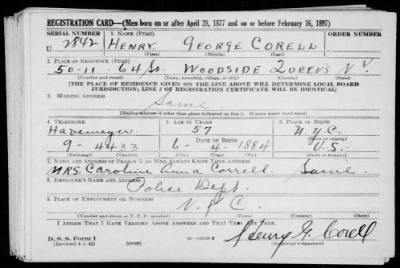 REGISTRATION CARD—(Men born on or after April 28, 1877 and on or before February 16, 1897)
SERIAL NUMBER 1. NAME (Print)
U 2842 HENRY GEORGE CORELL
(First) (Middle) (Last)
2. PLACE OF RESIDENCE (Print)
50-11-64 St. WOODSIDE QUEENS N.Y.
(Number and street) (Town, township, village, or city) (County) (State)
[THE PLACE OF RESIDENCE GIVEN ON THE LINE ABOVE WILL DETERMINE LOCAL BOARD
JURISDICTION; LINE 2 OF REGISTRATION CERTIFICATE WILL BE IDENTICAL]
3. MAILING ADDRESS
Same
[Mailing address if other than place indicated on line 2. If same insert word same]
4. TELEPHONE 5. AGE IN YEARS 6. PLACE OF BIRTH
Havemeyer 57 N.Y.C.
DATE OF BIRTH
9-4433 6-4-1884 U.S.
(Exchange) (Number) (Mo.) (Day) (Yr.) (State or country)
7. NAME AND ADDRESS OF PERSON WHO WILL ALWAYS KNOW YOUR ADDRESS
MRS. Caroline Anna Correll. Same
8. EMPLOYER'S NAME AND ADDRESS
Police Dept.
9. PLACE OF EMPLOYMENT OR BUSINESS
N.Y.C.
(Number and street or R. F. D. number) (Town) (County) (State)
I AFFIRM THAT I HAVE VERIFIED ABOVE ANSWERS AND THAT THEY ARE TRUE.
D. S. S. Form 1
(Revised 4-1-42) Henry G. Corell